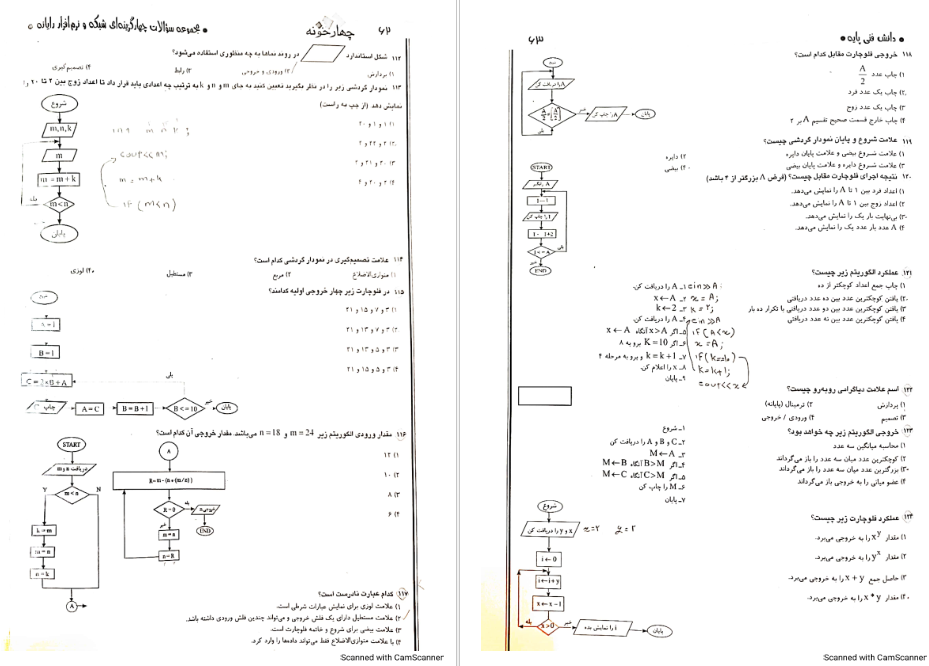 مجموعه سؤالات چهارگزینه‌ای شبکه و نرم‌افزار رایانه
چهارخونه
۶۲
۱۱۲ شکل استاندارد در روند نماها به چه منظوری استفاده می‌شود؟
۱) پردازش
۲) ورودی و خروجی
۳) رابط
۴) تصمیم‌گیری
۱۱۳ نمودار گردشی زیر را در نظر بگیرید تعیین کنید به جای m و n و k به ترتیب چه اعدادی باید قرار داد تا اعداد زوج بین ۲ تا ۲۰ را
نمایش دهد. (از چپ به راست)
۱) ۱ و ۱ و ۲۰
۲) ۲ و ۲۲ و ۲
۳) ۲۰ و ۲۱ و ۲
۴) ۲ و ۲۰ و ۴
شروع
m,n,k
m
m = m + k
m<n
بله
پایان
cout<<m;
m = m+k
if (m<n)
۱۱۴ علامت تصمیم‌گیری در نمودار گردشی کدام است؟
۱) متوازی‌الاضلاع
۲) مربع
۳) مستطیل
۴) لوزی
۱۱۵ در فلوچارت زیر چهار خروجی اولیه کدامند؟
۱) ۳ و ۷ و ۱۵ و ۲۱
۲) ۳ و ۷ و ۱۳ و ۲۱
۳) ۳ و ۵ و ۱۳ و ۲۱
۴) ۳ و ۵ و ۱۵ و ۲۱
شروع
A = 1
B = 1
C = 2×B + A
چاپ C
A = C
B = B + 1
B <= 10
بلی
خیر
پایان
۱۱۶ مقدار ورودی الگوریتم زیر m = 24 و n = 18 می‌باشد. مقدار خروجی آن کدام است؟
۱) ۱۲
۲) ۱۰
۳) ۸
۴) ۶
START
دریافت m و n
m < n
Y
N
k = m
m = n
n = k
A
A
R = m - (n * (m/n))
R = 0
بله
خیر
END
m = n
n = R
۱۱۷ کدام عبارت نادرست است؟
۱) علامت لوزی برای نمایش عبارات شرطی است.
۲) علامت مستطیل دارای یک فلش خروجی و می‌تواند چندین فلش ورودی داشته باشد.
۳) علامت بیضی برای شروع و خاتمه فلوچارت است.
۴) با علامت متوازی‌الاضلاع فقط می‌تواند داده‌ها را وارد کرد.
Scanned with CamScanner
۶۳
دانش فنی پایه
۱۱۸ خروجی فلوچارت مقابل کدام است؟
۱) چاپ عدد A/2
۲) چاپ یک عدد فرد
۳) چاپ یک عدد زوج
۴) چاپ خارج قسمت صحیح تقسیم A بر ۲
شروع
A را دریافت کن
A/2 = [A/2]
خیر
بلی
A را چاپ کن
پایان
۱۱۹ علامت شروع و پایان نمودار گردشی چیست؟
۱) علامت شروع بیضی و علامت پایان دایره
۲) دایره
۳) علامت شروع دایره و علامت پایان بیضی
۴) بیضی
۱۲۰ نتیجه اجرای فلوچارت مقابل چیست؟ (فرض A بزرگتر از ۲ باشد)
۱) اعداد فرد بین ۱ تا A را نمایش می‌دهد.
۲) اعداد زوج بین ۱ تا A را نمایش می‌دهد.
۳) بی‌نهایت بار یک را نمایش می‌دهد.
۴) A عدد بار عدد یک را نمایش می‌دهد.
START
I را چاپ کن
I <= A
بلی
خیر
END
۱۲۱ عملکرد الگوریتم زیر چیست؟
۱) چاپ جمع اعداد کوچکتر از ده
۲) یافتن کوچکترین عدد بین ده عدد دریافتی
۳) یافتن کوچکترین عدد بین دو عدد دریافتی با تکرار ده بار
۴) یافتن کوچکترین عدد بین نه عدد دریافتی
۱ـ A را دریافت کن.
۲ـ x ← A
۳ـ k ← 2
۴ـ A را دریافت کن.
۵ـ اگر x>A آنگاه x ← A
۶ـ اگر K = 10 برو به ۸
۷ـ k = k + 1 و برو به مرحله ۴
۸ـ x را اعلام کن.
۹ـ پایان
cin>>A;
x = A;
k = 2;
cin>>A
if (A<x)
x = A;
if (k=10)
k=k+1;
cout<<x
۱۲۲ اسم علامت دیاگرامی روبه‌رو چیست؟
۱) پردازش
۲) ترمینال (پایانه)
۳) تصمیم
۴) ورودی / خروجی
۱۲۳ خروجی الگوریتم زیر چه خواهد بود؟
۱) محاسبه میانگین سه عدد
۲) کوچکترین عدد میان سه عدد را باز می‌گرداند
۳) بزرگترین عدد میان سه عدد را باز می‌گرداند
۴) عضو میانی را به خروجی باز می‌گرداند
۱ـ شروع
۲ـ A و B و C را دریافت کن
۳ـ M ← A
۴ـ اگر B>M آنگاه M ← B
۵ـ اگر C>M آنگاه M ← C
۶ـ M را چاپ کن
۷ـ پایان
۱۲۴ عملکرد فلوچارت زیر چیست؟
۱) مقدار x^y را به خروجی می‌برد.
۲) مقدار y^x را به خروجی می‌برد.
۳) حاصل جمع x + y را به خروجی می‌برد.
۴) مقدار x * y را به خروجی می‌برد.
شروع
x و y را دریافت کن
x=2 y=2
i ← 0
i ← i + y
x ← x − 1
x>0
بله
خیر
i را نمایش بده
پایان
Scanned with CamScanner